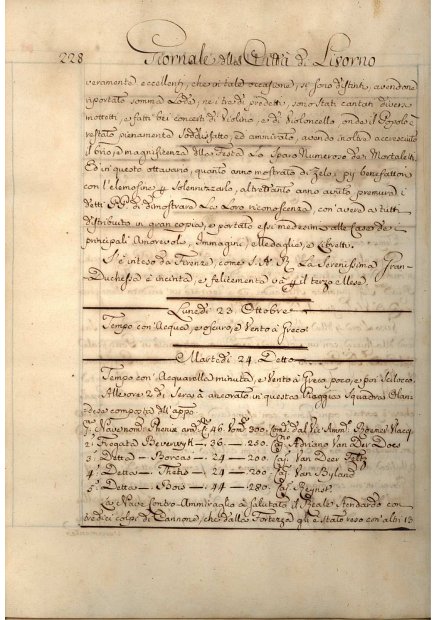 228 Giornale della Città di Livorno
veramente eccellenti, che in tale occasione, si sono distinti, avendone
riportato somma Lode, ne i tridui predetti, sono stati cantati diversi
mottetti, e fatti bei concerti di Violino, e di Violoncello onde il Popolo è
restato pienamente Soddisfatto, ed ammirato, avendo inoltre accresciuto
il brio, e magnifitenza della Festa Lo sparo Numeroso de Mortaletti
Ed in questo ottavario, quanto anno mostrato di Zelo i pij benefattori
con l'elemosine Solennizarlo, altrettanto anno avuto premura i
detti PP. di dimostrare La Loro riconoscenza, con avere a tutti
distribuito in gran copia, e portato essi medesimi alle Case de
principali Amorevoli, Immagini, Medaglie, e Libretti.
S'è inteso da Firenze, come S. A. R. La Serenissima Gran-
Duchessa è incinta, e felicemente và il terzo Mese
Lunedì 23 Ottobre
Tempo con Acqua, e oscuro, e Vento à Greco
Martedì 24 Detto
Tempo con Acquarella minuta, e Vento à Greco poco, e poi Scilocco
All'ore 2 di Sera à ancorato in questa Spiaggia Squadra Olan
dese composta dell'appo
2. Fregata Beverwyk — 36 — 250. Adriano Van Der Does
3. Detta — Boreas — 24 — 200. Van Deer
4. Detta — Thetis — 24 — 200 Van Byland
5. Detta — — 44 — 280.
La Nave Contro-Ammiraglio à salutato il Reale Stendardo con
tredici colpi di Cannone, che dalla Fortezza gli è stato reso con altri 13